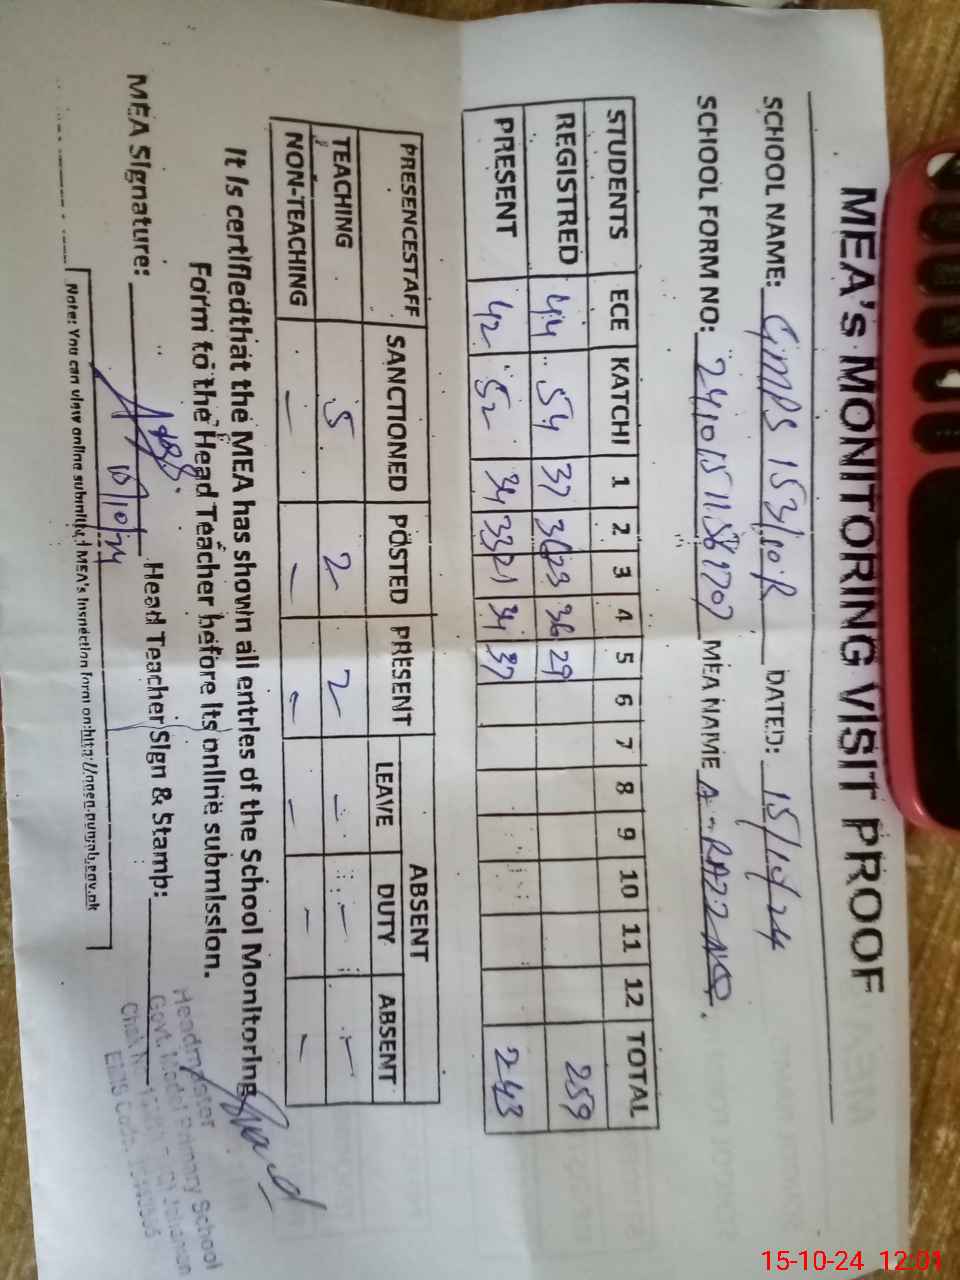 MEA's MONITORING VISIT PROOF
SCHOOL NAME: GMPS 153/10R DATED: 15/10/24
SCHOOL FORM NO: MEA NAME A-RAZZAQ.
STUDENTS ECE KATCHI 1 2 3 4 5 6 7 8 9 10 11 12 TOTAL
REGISTRED 44 54 37 36 23 36 29 259
PRESENT 42 52 34 33 21 34 243
ABSENT
PRESENCESTAFF SANCTIONED POSTED PRESENT LEAVE DUTY ABSENT
TEACHING 5 2 2 - - -
NON-TEACHING - - - - - -
It is certifiedthat the MEA has shown all entries of the School Monitoring
Form to the Head Teacher before its online submission.
MEA Signature: Head Teacher Sign & Stamp:
15/10/24
Headmaster
Govt. Model Primary School
Chak No.
EMIS Code
Note: You can view online submitted MEA's Inspection form on:
15-10-24 12:01